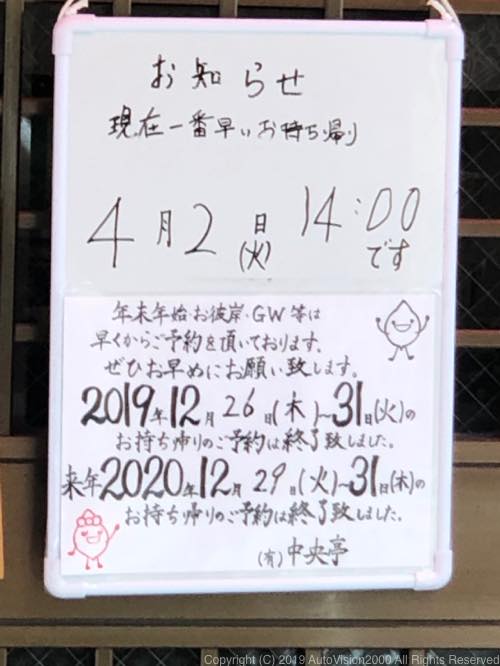 お知らせ
現在一番早いお持ち帰り
4月2日(火) 14:00です
年末年始・お彼岸・GW等は
早くからご予約を頂いております。
ぜひお早めにお願い致します。
2019年12月26日(木)～31日(火)の
お持ち帰りのご予約は終了致しました。
来年2020年12月29日(火)～31日(木)の
お持ち帰りのご予約は終了致しました。
(有)中央亭
Copyright (C) 2019 AutoVision2000 All Rights Reserved.